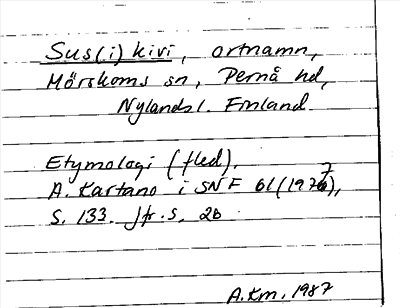 Sus(i)kivi, ortnamn,
Mörskoms sn, Pernå hd,
Nylands l. Finland.
Etymologi (fled).
A. Kartano i SNF 61 (1977),
S. 133. Jfr. s. 26
A.Km. 1987